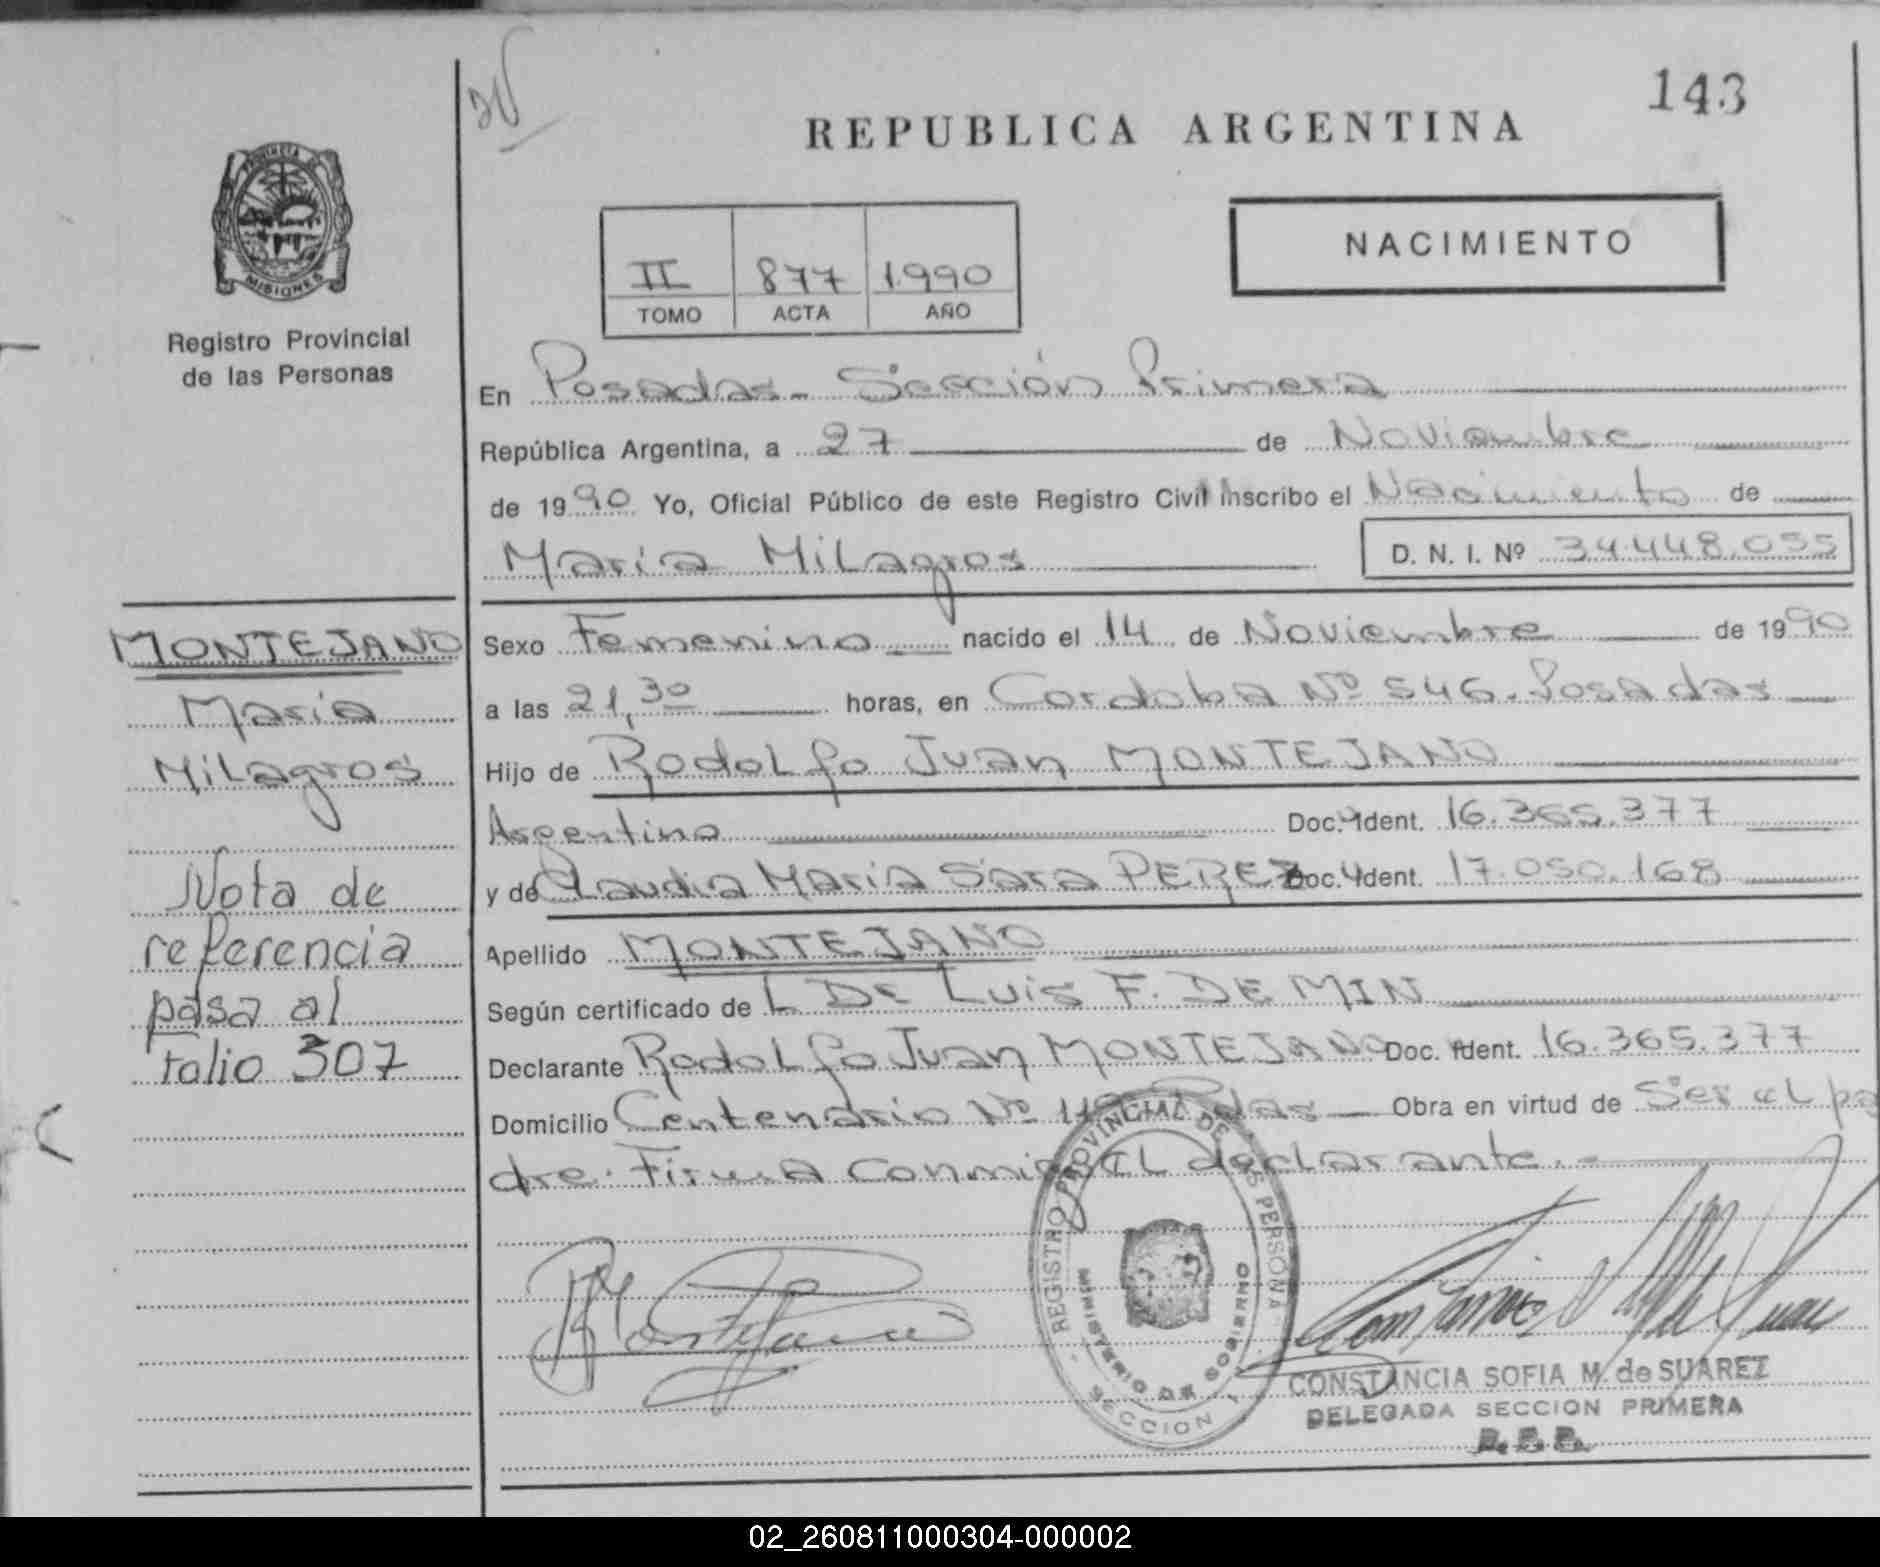 143
REPUBLICA ARGENTINA
PROVINCIA DE
MISIONES
Registro Provincial
de las Personas
NACIMIENTO
II 877 1.990
TOMO ACTA AÑO
En Posadas - Sección Primera
República Argentina, a 27 de Noviembre
de 1990 Yo, Oficial Público de este Registro Civil inscribo el Nacimiento de
Maria Milagros D. N. I. Nº 34.448.055
MONTEJANO
Maria
Milagros
Nota de
referencia
pasa al
folio 307
Sexo Femenino nacido el 14 de Noviembre de 1990
a las 21,30 horas, en Cordoba Nº 546. Posadas
Hijo de Rodolfo Juan MONTEJANO
Argentino Doc. Ident. 16.365.377
y de Claudia Maria Sara PEREZ Doc. Ident. 17.050.168
Apellido MONTEJANO
Según certificado de L De Luis F. DE MIN
Declarante Rodolfo Juan MONTEJANO Doc. Ident. 16.365.377
Domicilio Centenario Nº Pdas Obra en virtud de Ser el pa
dre. Firma conmigo el declarante. -
REGISTRO PROVINCIAL DE LAS PERSONAS
MINISTERIO DE GOBIERNO
SECCION 1
CONSTANCIA SOFIA M. de SUAREZ
DELEGADA SECCION PRIMERA
02_260811000304-000002